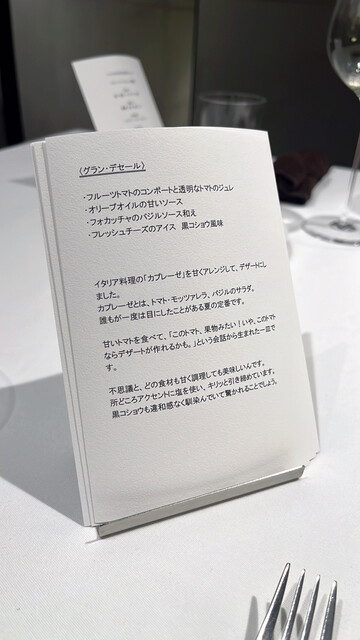 〈グラン・デセール〉
・フルーツトマトのコンポートと透明なトマトのジュレ
・オリーブオイルの甘いソース
・フォカッチャのバジルソース和え
・フレッシュチーズのアイス　黒コショウ風味
イタリア料理の「カプレーゼ」を甘くアレンジして、デザートにし
ました。
カプレーゼとは、トマト・モッツァレラ、バジルのサラダ。
誰もが一度は目にしたことがある夏の定番です。
甘いトマトを食べて、「このトマト、果物みたい！いや、このトマト
ならデザートが作れるかも。」という会話から生まれた一皿で
す。
不思議と、どの食材も甘く調理しても美味しいんです。
所どころアクセントに塩を使い、キリッと引き締めています。
黒コショウも違和感なく馴染んでいて驚かれることでしょう。